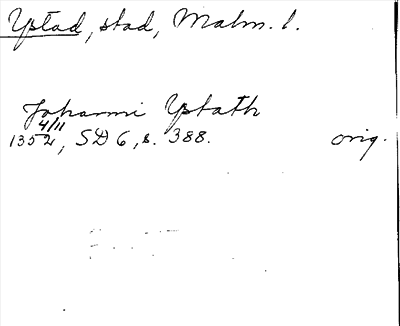 Ystad, stad, Malm. l.
Johanni Ystath
4/11
1352, SD 6, s. 388. orig.